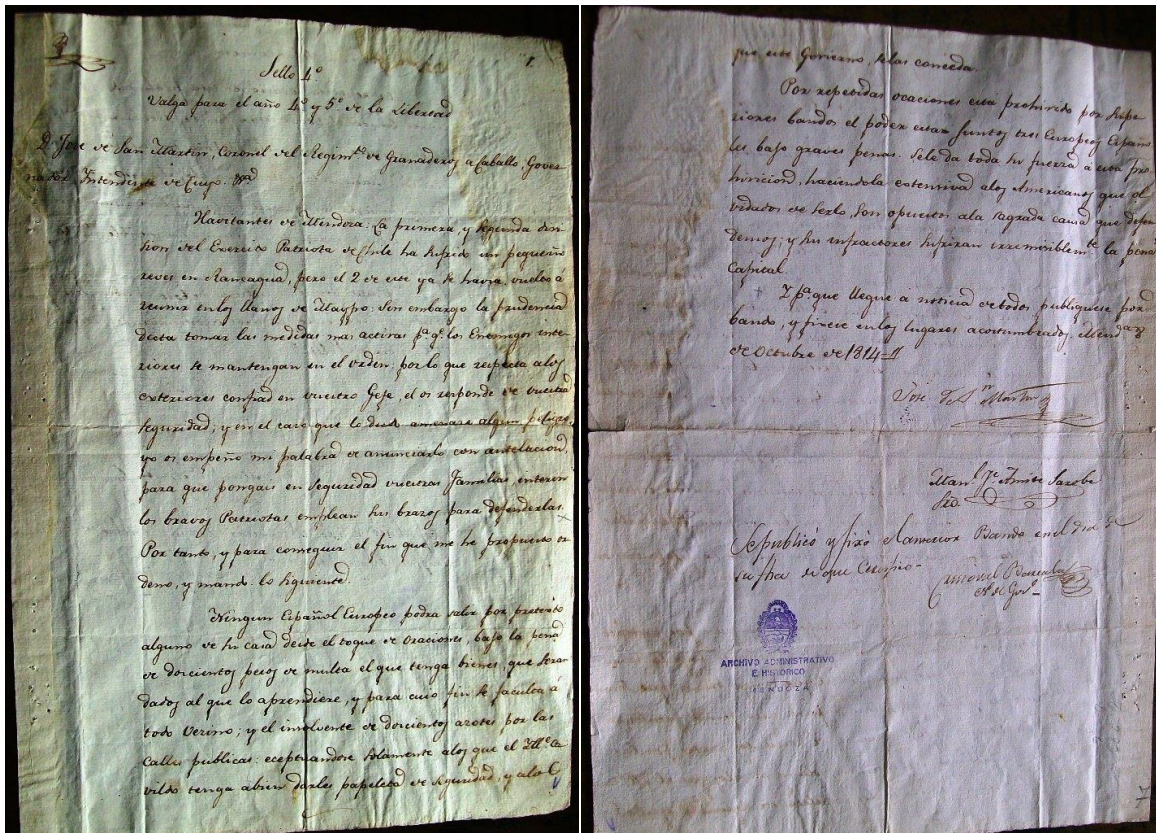 1.
Sello 4º
Valga para el año 4º y 5º de la Libertad
D. Jose de San Martin, Coronel del Regimto de Granaderos a Caballo, Gover
nador Intendente de Cuyo. &a
Havitantes de Mendoza: La primera, y segunda divi
sion del Exercito Patriota de Chile ha sufrido un pequeño
reves en Rancagua, pero el 2 de este ya se havia vuelto á
reunir en los llanos de Maypo. Sin embargo la prudencia
dicta tomar las medidas mas activas pa qe los Enemigos inte
riores se mantengan en el orden: por lo que respecta alos
exteriores confiad en vuestro Gefe, el os responde de vuestra
seguridad; y en el caso que la amenase algun peligro,
yo os empeño mi palabra de anunciarlo con antelacion,
para que pongais en seguridad vuestras Familias, interin
los bravos Patriotas emplean sus brazos para defenderlas.
Por tanto, y para conseguir el fin que me he propuesto or
deno, y mando lo siguiente.
Ningun Español Europeo podra salir por pretexto
alguno de su casa desde el toque de Oraciones, bajo la pena
de dorcientos pesos de multa el que tenga bienes, que seran
dados al que lo aprendiere, y para cuio fin se faculta á
todo Vecino; y el insolvente de dorcientos azotes por las
calles publicas: eceptuandose solamente alos que el Ille Ca
vildo tenga abien darles papeleta de seguridad, y alos
que este Govierno, selas conceda.
Por repetidas ocaciones está prohivido por supe
riores bandos el poder estar juntos tres Europeos Españo
les bajo graves penas. Sele da toda su fuerza á esta pro
hivicion, haciendola estensiva alos Americanos que ol
vidados de serlo, son opuestos ala sagrada causa que defen
demos; y sus infractores sufriran irremisiblemte la pena
Capital.
Y pa que llegue a noticia de todos publiquese por
bando, y fixese en los lugares acostumbrados. Mendza y
de Octubre de 1814
Jose de Sn Martin
Manl Je Amite Sarobe
Sro.
Se publicó y fixó el anterior Bando en el dia de
su fha de que Certifico
Christoval Barcala
Eno de Govo
ARCHIVO ADMINISTRATIVO
E HISTORICO
MENDOZA